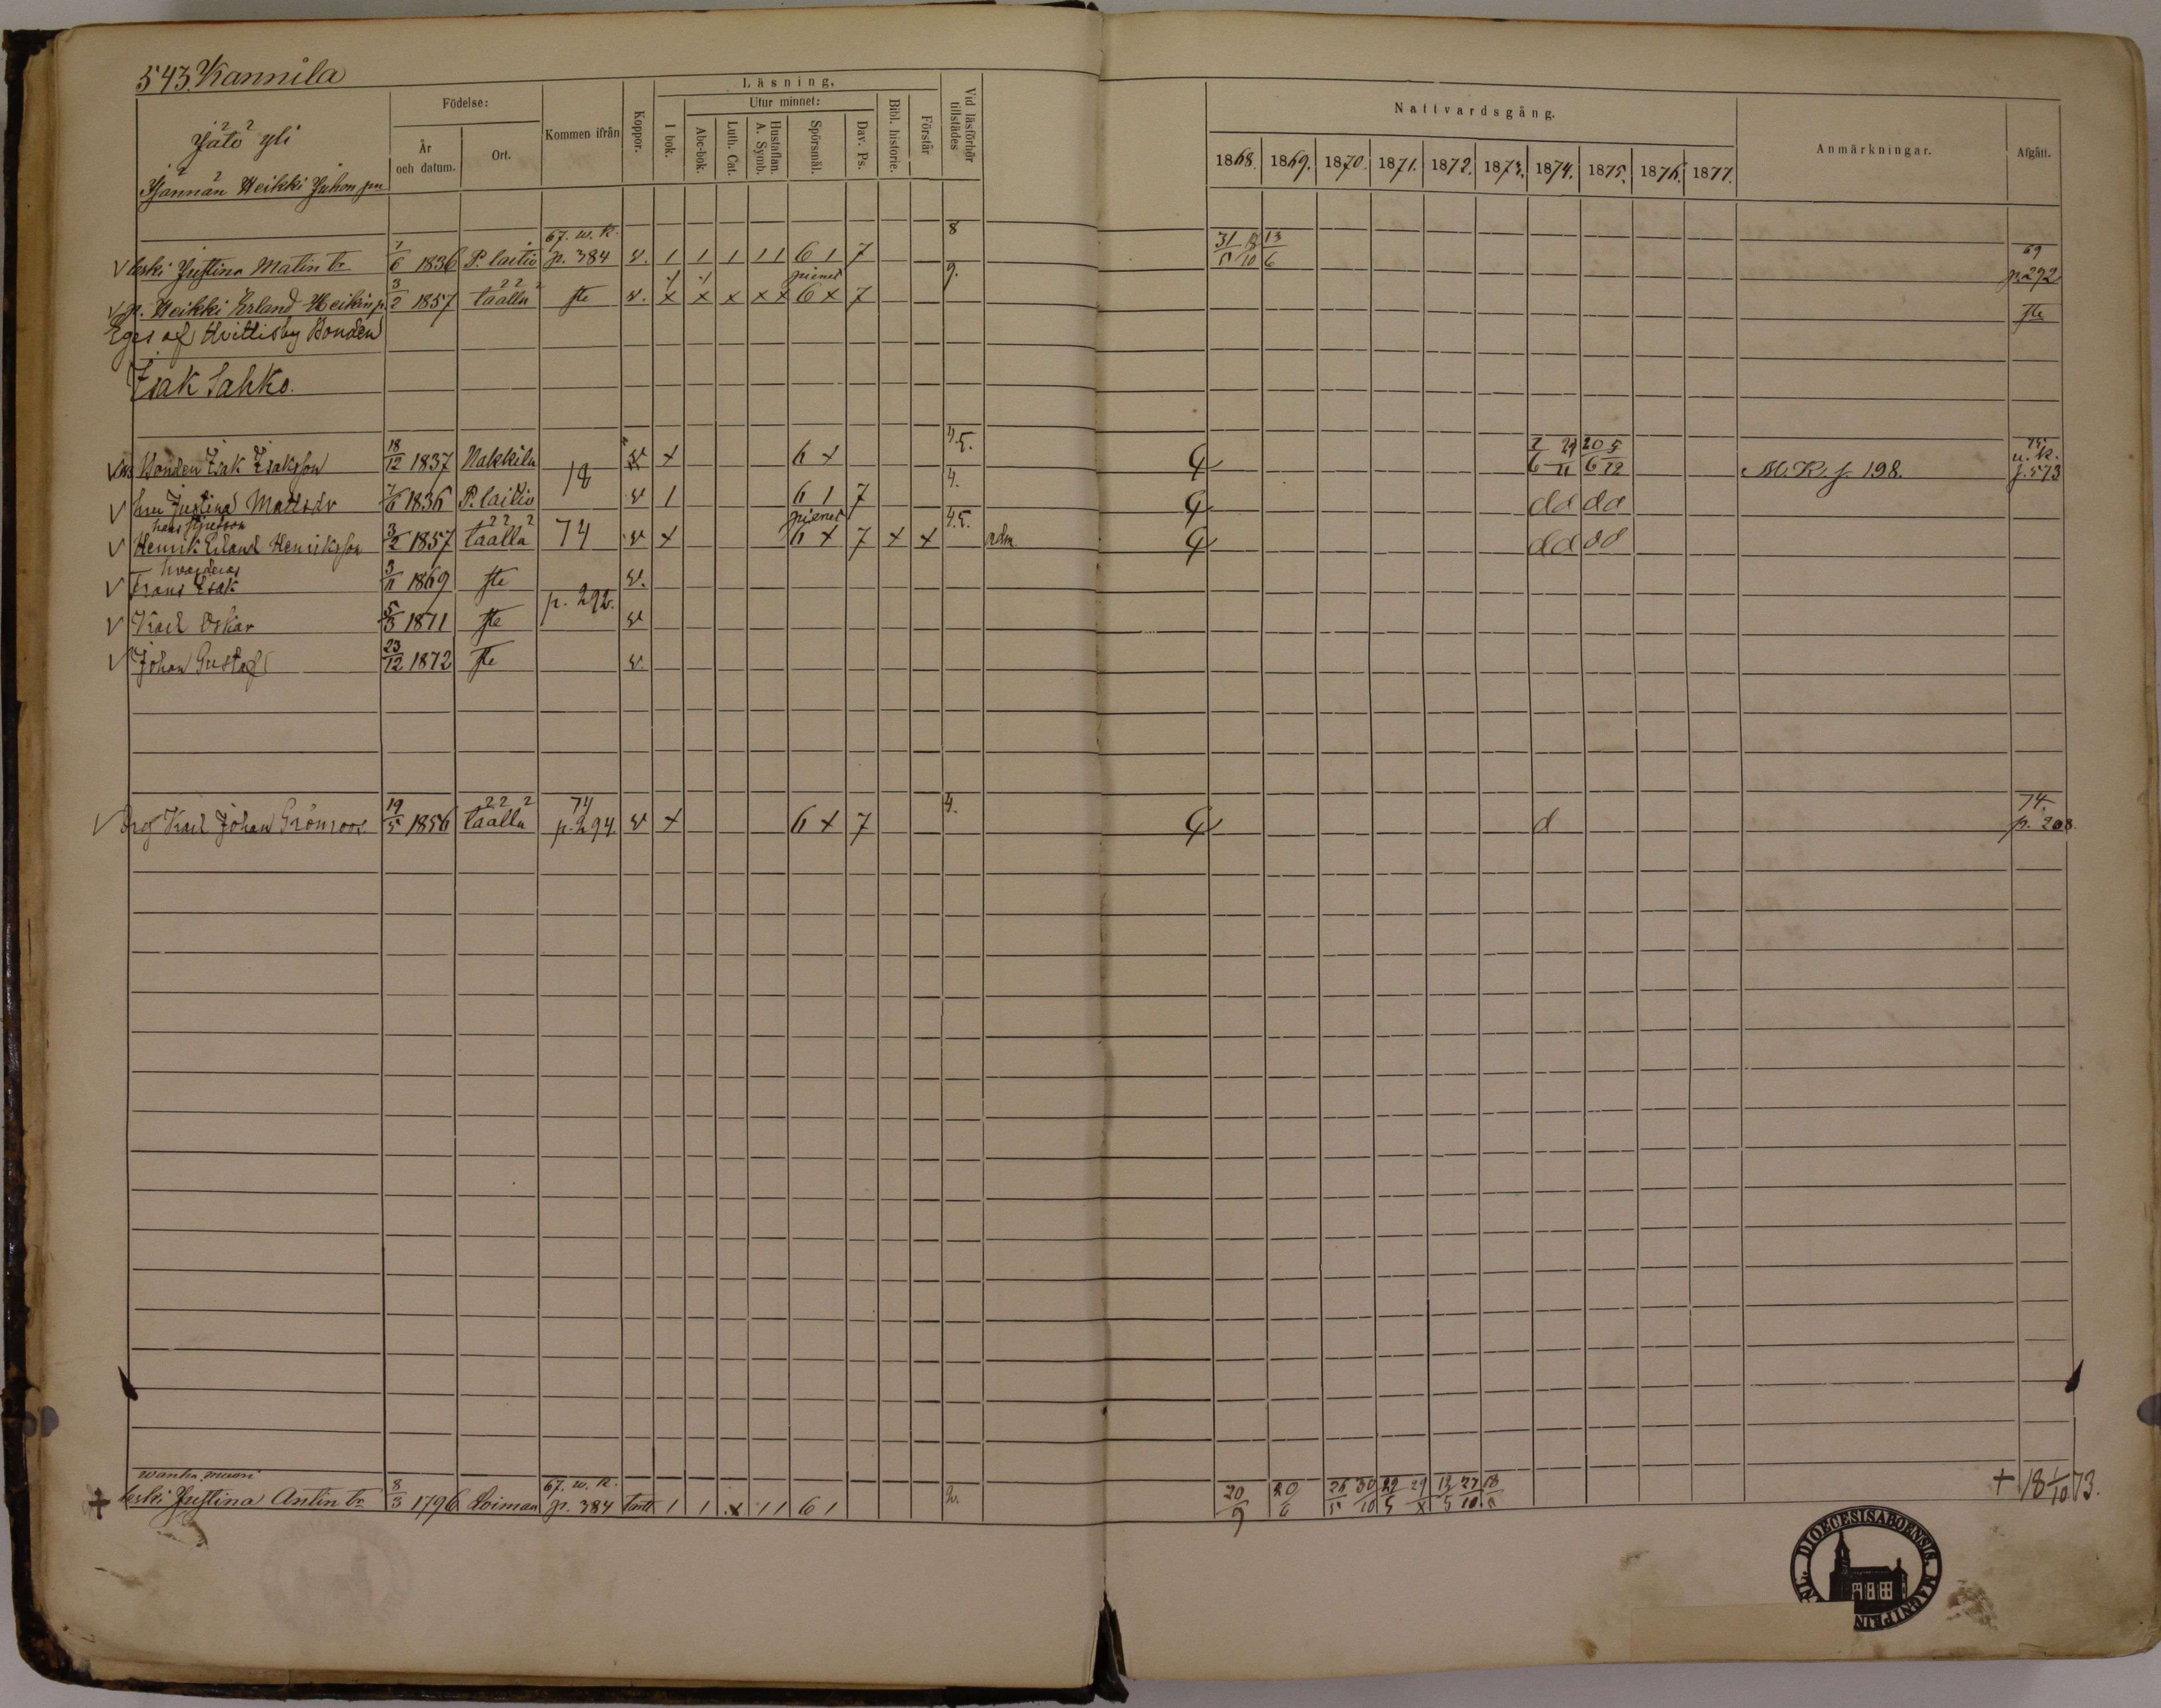 543. Kannila
Jäto yli
Isännän Heikki Juhon pn
Födelse:
År och datum.
Ort.
Kommen ifrån
Koppor.
Läsning,
I bok.
Utur minnet:
Abc-bok.
Luth. Cat.
Hustaflan. A. Symb.
Spörsmål.
Dav. Ps.
Bibl. historie.
Förstår
Vid läsförhör tillstädes
Nattvardsgång.
1868. 1869. 1870. 1871. 1872. 1873. 1874. 1875. 1876. 1877.
Anmärkningar.
Afgått.
√ leski Justina Matin tr 7/6 1836 P. laitio 67. w. k. p. 384 v. 1 1 1 1 1 6 1 7 8 31/5 18/10 13/6 69 p. 292
√ p. Heikki Erland Heikin p. 3/2 1857 täällä ste v. x x x x x pienet 6 x 7 9. ste
Eges af Hvittisby Bonden
Isak Sahko.
Bonden Isak Isaksson 18/12 1837 Nakkila v x 6 x 4.5. 7/6 29/11 20/6 5/12 M. K. f. 198. 75. u. k. f. 573
18
√ hru Justina Mattsdr 7/6 1836 P. laitio v 1 6 1 7 4. dd dd
hans styfson
√ Henrik Erland Henriksson 3/2 1857 täällä 74 v x pienet 6 x 7 x x 4.5. adm. dd dd
hvarderas
√ Frans Isak 3/11 1869 ste v.
p. 292.
√ Karl Oskar 5/3 1871 ste v
√ Johan Gustaf 23/12 1872 ste v.
√ Drg Karl Johan Grönroos 19/5 1856 täällä 74 p. 294. v x 6 x 7 4. d 74. p. 208.
wanha muori
+ leski Justina Antin tr 8/3 1796 Loimaa 67. w. k. p. 384 1 1 x 1 1 6 1 20/9 20/6 26/5 30/10 22/5 29/x 12/5 27/10 + 18 1/10 73.
DIOECESIS ABOENSIS